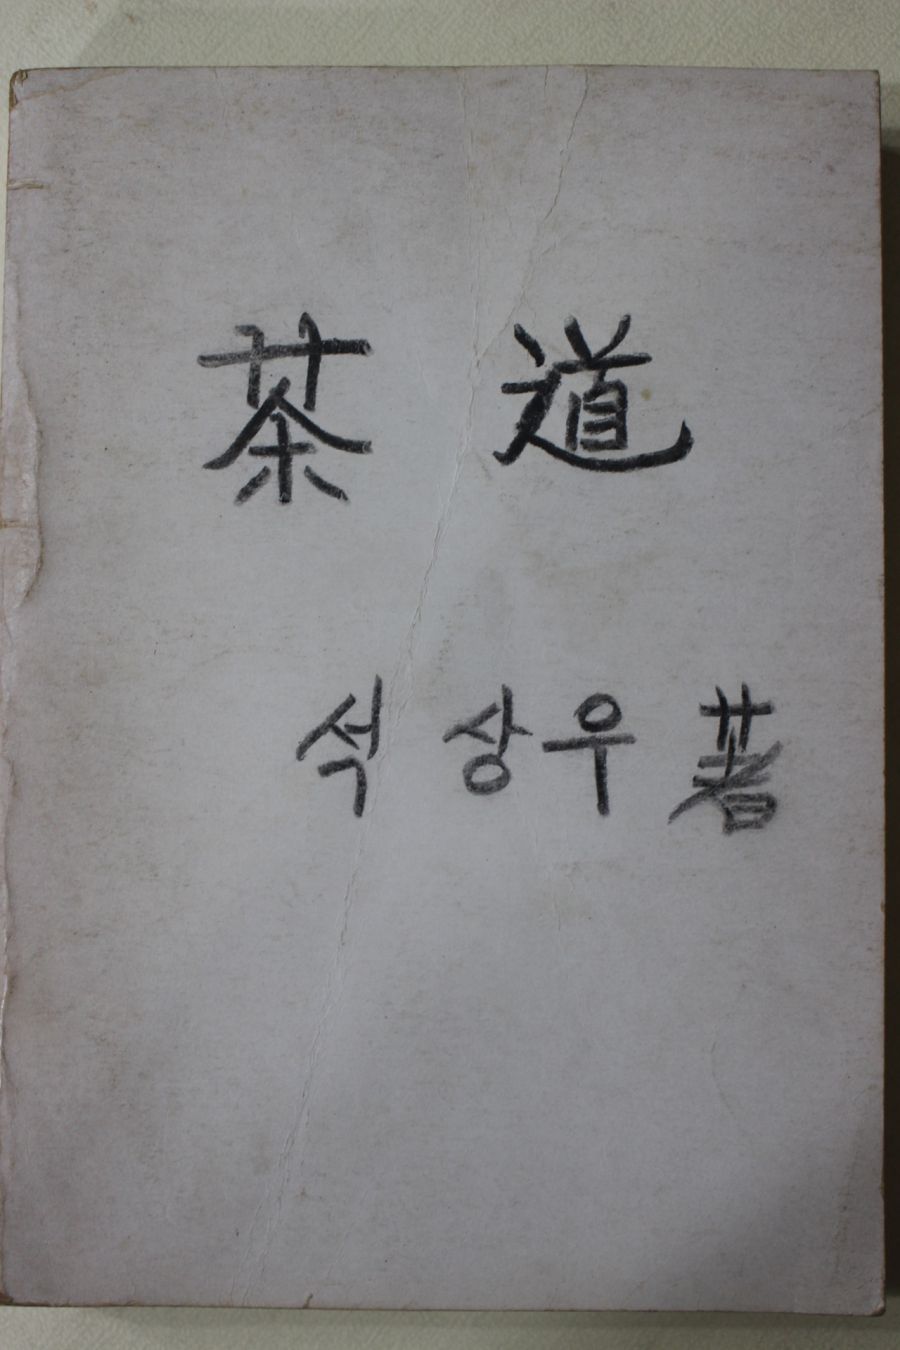 茶道
석 상우 著